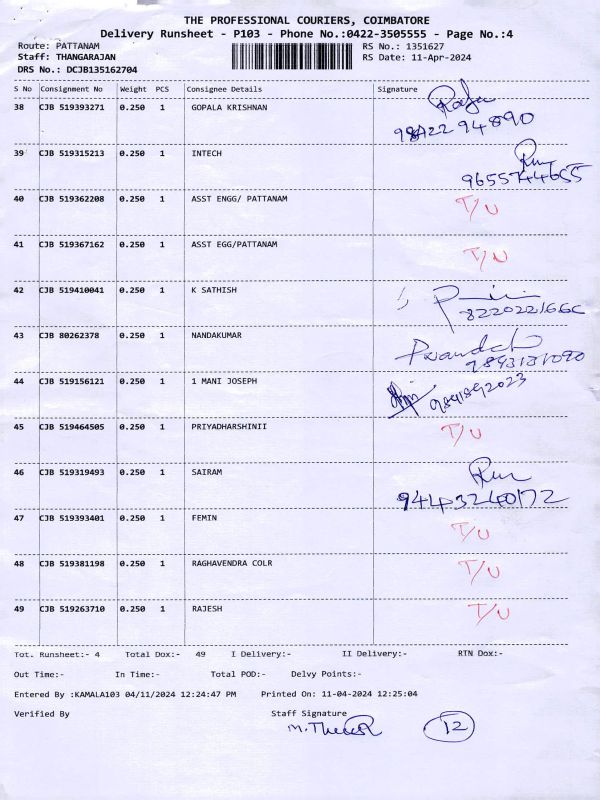 THE PROFESSIONAL COURIERS, COIMBATORE
Delivery Runsheet - P103 - Phone No.:0422-3505555 - Page No.:4
Route: PATTANAM RS No.: 1351627
Staff: THANGARAJAN RS Date: 11-Apr-2024
DRS No.: DCJB135162704
S No Consignment No Weight PCS Consignee Details Signature
38 CJB 519393271 0.250 1 GOPALA KRISHNAN
98422 94890
39 CJB 519315213 0.250 1 INTECH
9655744655
40 CJB 519362208 0.250 1 ASST ENGG/ PATTANAM T/U
41 CJB 519367162 0.250 1 ASST EGG/PATTANAM T/U
42 CJB 519410041 0.250 1 K SATHISH
43 CJB 80262378 0.250 1 NANDAKUMAR
44 CJB 519156121 0.250 1 1 MANI JOSEPH
9841892023
45 CJB 519464505 0.250 1 PRIYADHARSHINII T/U
46 CJB 519319493 0.250 1 SAIRAM
9443240172
47 CJB 519393401 0.250 1 FEMIN T/U
48 CJB 519381198 0.250 1 RAGHAVENDRA COLR T/U
49 CJB 519263710 0.250 1 RAJESH T/U
Tot. Runsheet:- 4 Total Dox:- 49 I Delivery:- II Delivery:- RTN Dox:-
Out Time:- In Time:- Total POD:- Delvy Points:-
Entered By :KAMALA103 04/11/2024 12:24:47 PM Printed On: 11-04-2024 12:25:04
Verified By Staff Signature
12